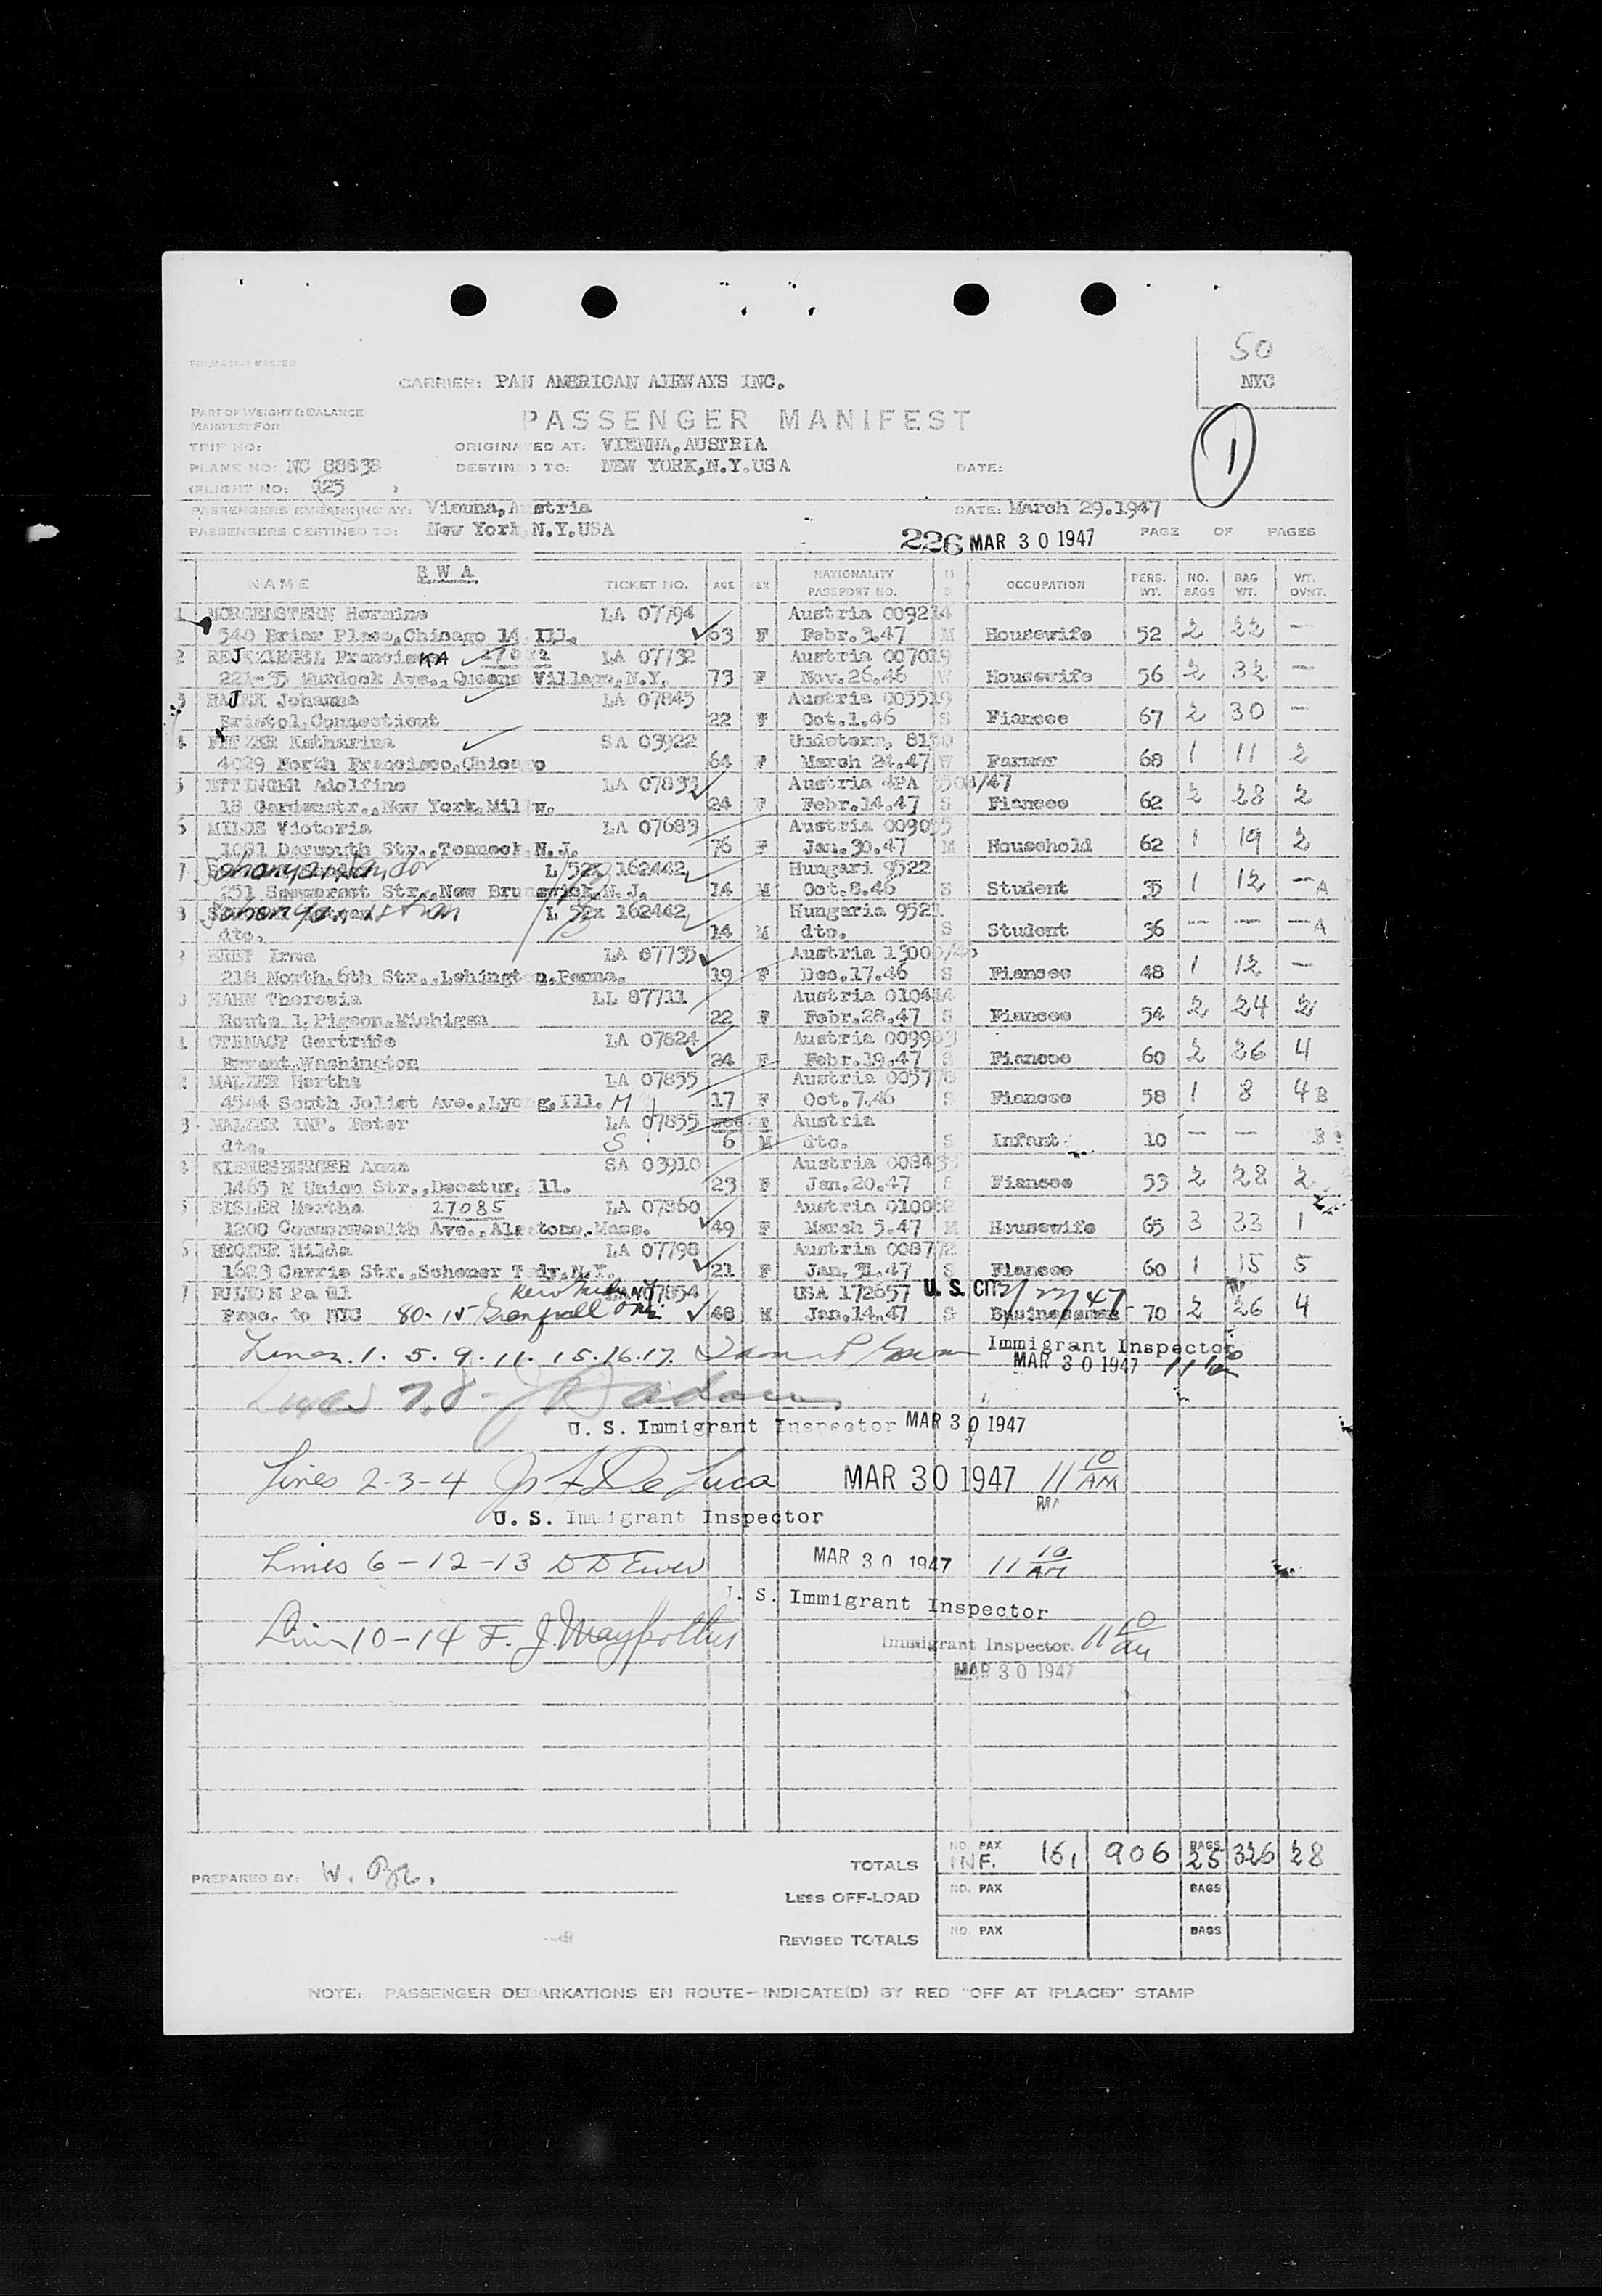 50
CARRIER: PAN AMERICAN AIRWAYS INC.
NYC
PART OF WEIGHT & BALANCE
MANIFEST FOR
PASSENGER MANIFEST
1
TRIP NO: ORIGINATED AT: VIENNA, AUSTRIA
PLANE NO: NC 88838 DESTINED TO: NEW YORK, N.Y. USA DATE:
(FLIGHT NO: 125 )
PASSENGERS EMBARKING AT: Vienna, Austria DATE: March 29.1947
PASSENGERS DESTINED TO: New York N.Y.USA PAGE OF PAGES
226 MAR 30 1947
NAME TICKET NO. AGE SEX NATIONALITY PASSPORT NO. OCCUPATION PERS. WT. NO. BAGS BAG WT. WT. OVWT.
1 MORGENSTERN Hermine LA 07794 Austria 009214
540 Briar Place, Chicago 14 Ill. 63 F Febr.3.47 M Housewife 52 2 22 —
2 LA 07732 Austria 007019
221-35 Murdock Ave., Queens Village, N.Y. 73 F Nov.26.46 W Housewife 56 2 32 —
3 HAJEK Johanna LA 07845 Austria 005519
Bristol, Connecticut 22 F Oct.1.46 S Fiancee 67 2 30 —
4 Katharina SA 03922 Undeterm, 8130
4029 North Francisco, Chicago 64 F March 24.47 W Farmer 68 1 11 2
5 ETTINGER Adolfine LA 07833 Austria
18 Gardenstr., New York, 24 F Febr.14.47 S Fiancee 62 2 28 2
6 MILOS Victoria LA 07683 Austria 009035
Teaneck, N.J. 76 F Jan.30.47 M Household 62 1 19 2
7 L 522 162442 Hungari 9522
251 Sommerset Str., New Brunswick, N.J. 14 M Oct.8.46 S Student 35 1 12 — A
8 L 522 162442 Hungaria
dto. 14 M dto. S Student 36 — — — A
ERBT Irma LA 07735 Austria
218 North 6th Str., Lehington, Penna. 19 F Dec.17.46 S Fiancee 48 1 12 —
HAHN Theresia LL 87711 Austria
Route 1, Pigeon, Michigan 22 F Febr.28.47 S Fiancee 54 2 24 2
LA 07824 Austria
Bryant, Washington 24 F Febr.19.47 S Fiancee 60 2 26 4
MALZER Hertha LA 07855 Austria 005778
4544 South Joliet Ave., Lyong, Ill. M 17 F Oct.7.46 S Fiancee 58 1 8 4 B
MALZER INF. Peter LA 07855 Austria
dto. S 6 M dto. S Infant 10 — — B
KIENESBERGER Anna SA 03910 Austria
1465 N Union Str., Decatur, Ill. 23 F Jan.20.47 S Fiancee 53 2 28 2
EISLER Martha 17085 LA 07860 Austria
1200 Commonwealth Ave., Alestone, Mass. 49 F March 5.47 M Housewife 65 3 33 1
HECKER Hilda LA 07798 Austria 008772
1623 Carrie Str., Schener Tady, N.Y. 21 F Jan.31.47 S Fiancee 60 1 15 5
USA 172657 U. S. CIT
Proc. to NYC 80-15 Grenfell 48 M Jan.14.47 S Businessman 70 2 26 4
Lines. 1. 5. 9. 11. 15. 16. 17. Immigrant Inspector
MAR 30 1947
Lines 7.8
U. S. Immigrant Inspector MAR 30 1947
Lines 2-3-4 De Luca MAR 30 1947 11 10 AM
U. S. Immigrant Inspector
Lines 6-12-13 MAR 30 1947 11 10 AM
U. S. Immigrant Inspector
10-14 F. J. Immigrant Inspector. 11 10
MAR 30 1947
TOTALS NO. PAX INF. 16 1 906 BAGS 25 326 28
PREPARED BY: W.
LESS OFF-LOAD NO. PAX BAGS
REVISED TOTALS NO. PAX BAGS
NOTE: PASSENGER DEBARKATIONS EN ROUTE—INDICATE(D) BY RED "OFF AT (PLACE)" STAMP